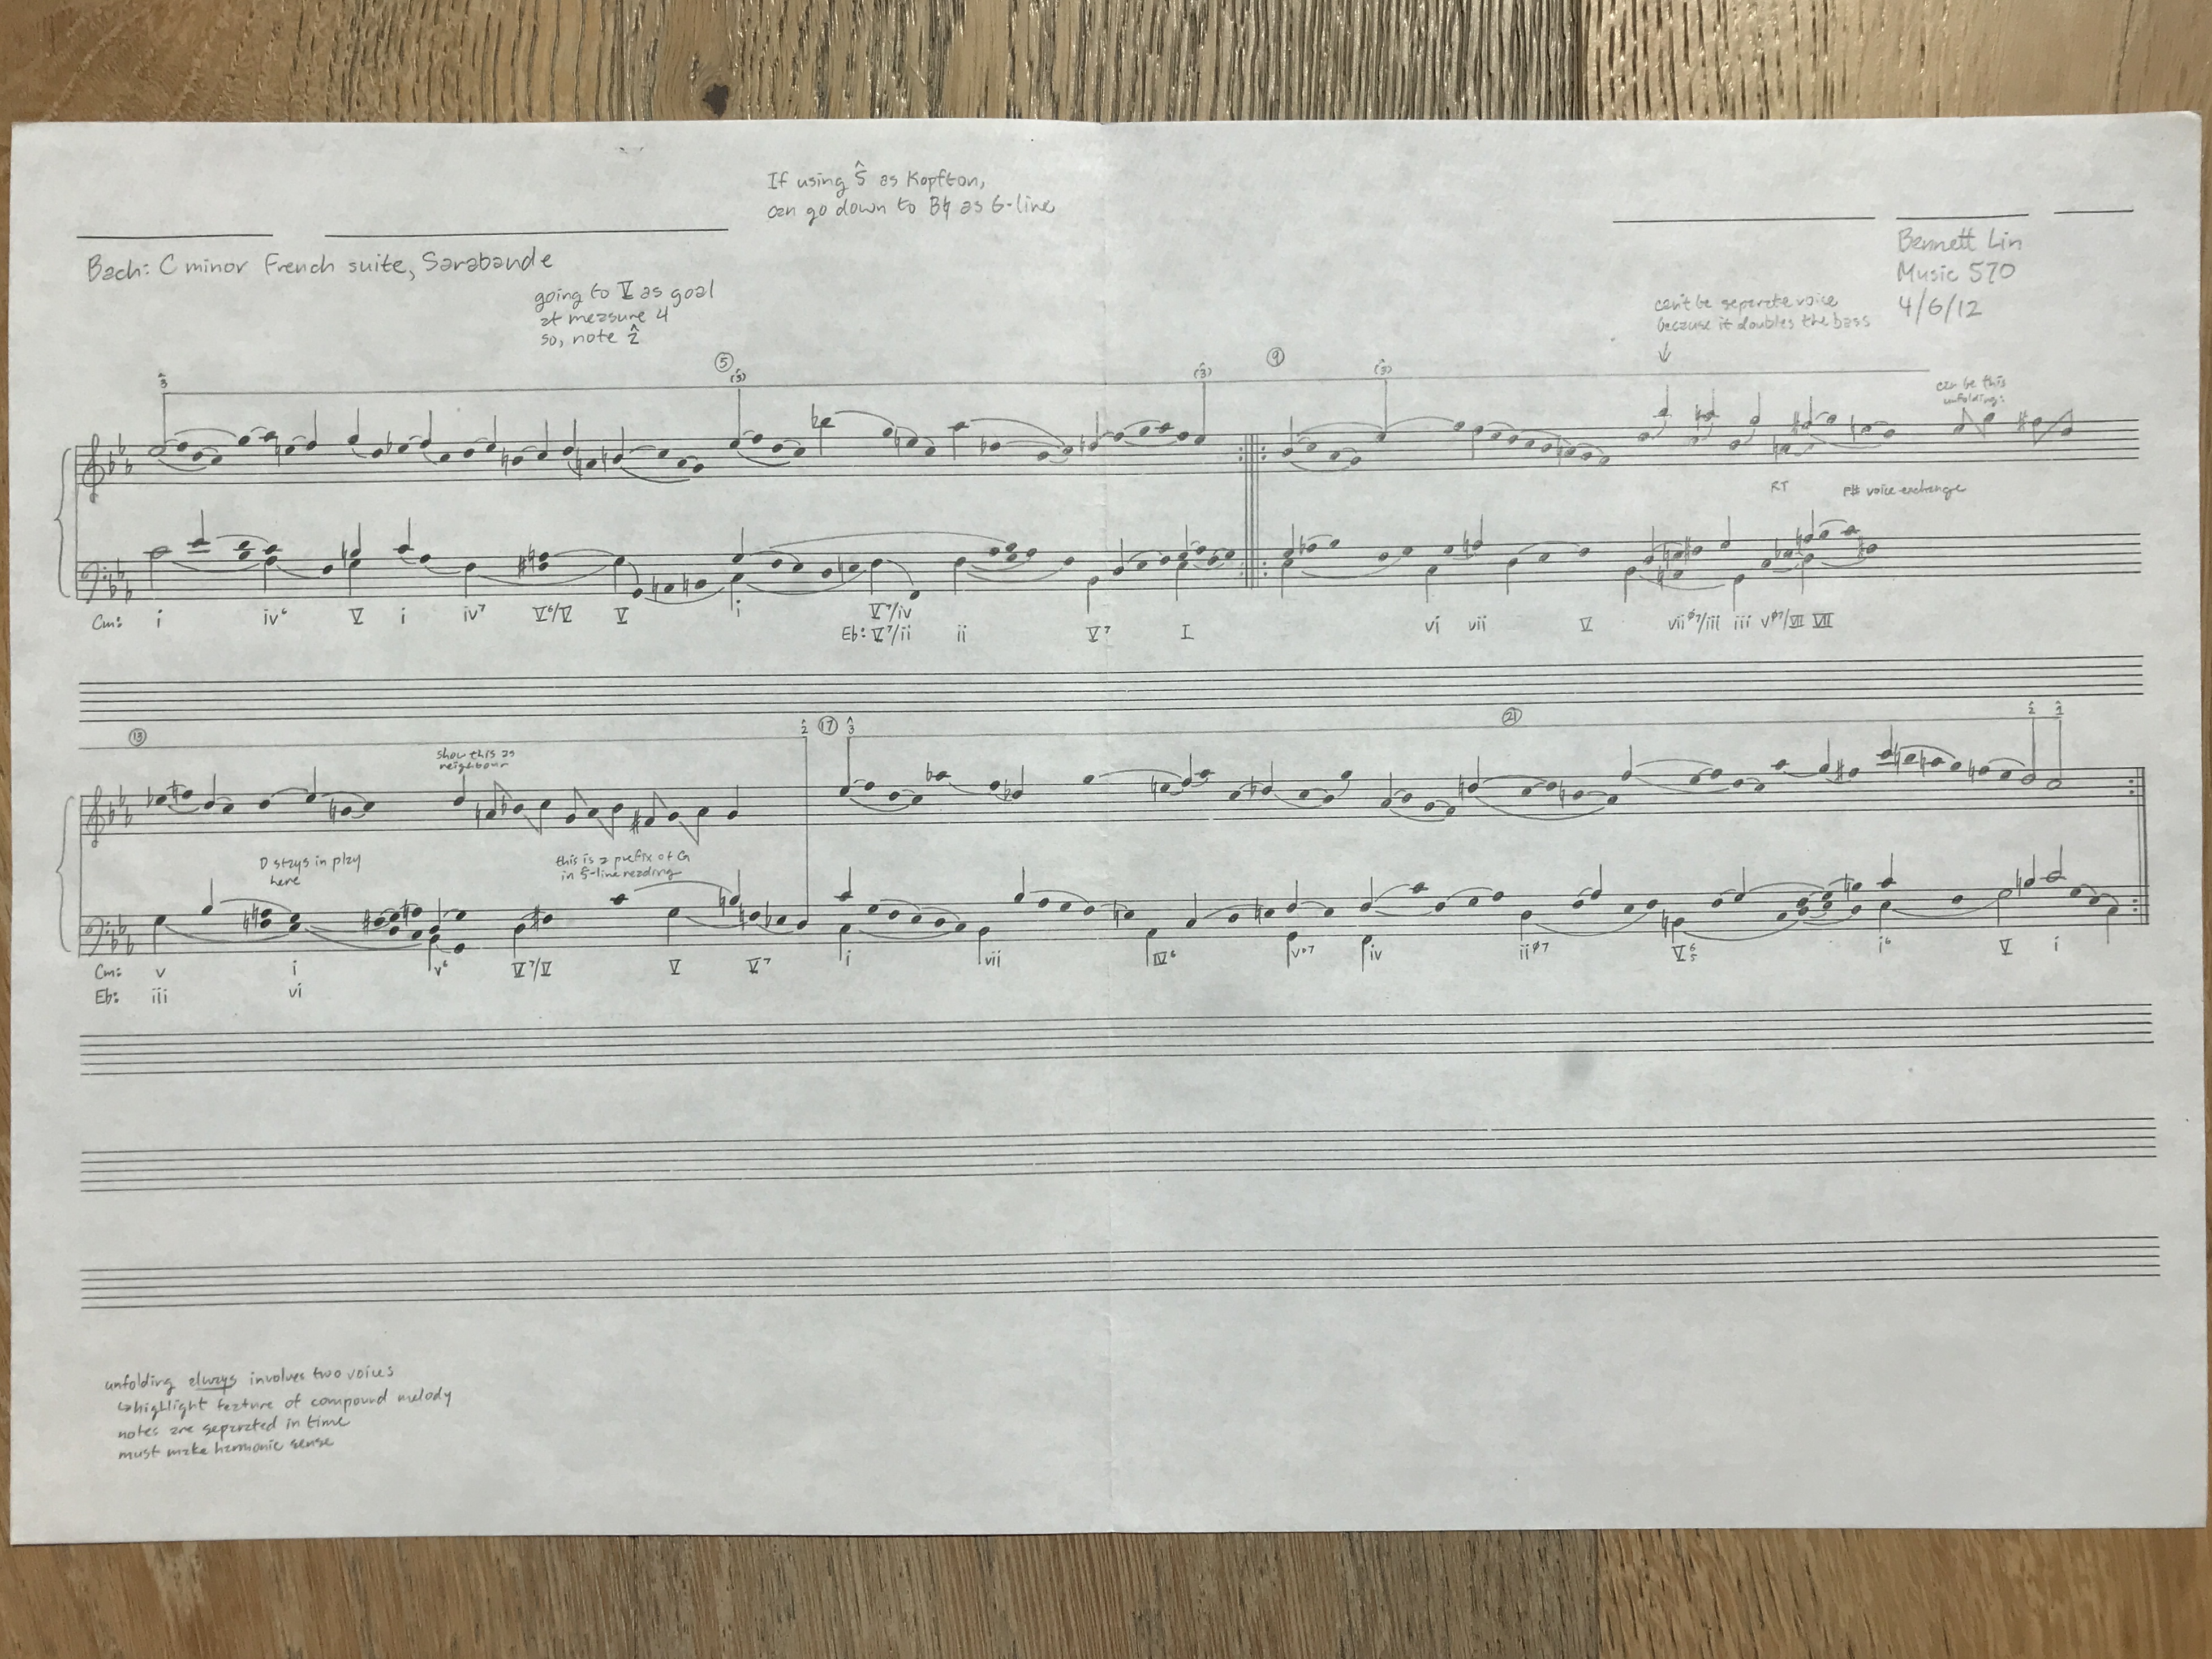 If using 5̂ as Kopfton,
can go down to B♮ as 6-line
Bach: C minor French suite, Sarabande
Bennett Lin
Music 570
4/6/12
going to V as goal
at measure 4
so, note 2̂
can't be separate voice
because it doubles the bass
↓
⑤ ⑨
3̂ (3̂) (3̂) (3̂)
can be this
unfolding:
RT F# voice exchange
Cm: i iv⁶ V i iv⁷ V⁶/V V i V⁷/iv
Eb: V⁷/ii ii V⁷ I vi vii V viiø⁷/iii iii vø⁷/VII VII
⑬ 2̂ ⑰ 3̂ ㉑ 2̂ 1̂
show this as
neighbour
D stays in play
here
this is a prefix of G
in 5-line reading
Cm: v i v⁶ V⁷/V V V⁷ i vii IV⁶ vo⁷ iv iiø⁷ V⁶₅ i⁶ V i
Eb: iii vi
unfolding always involves two voices
↳highlight feature of compound melody
notes are separated in time
must make harmonic sense